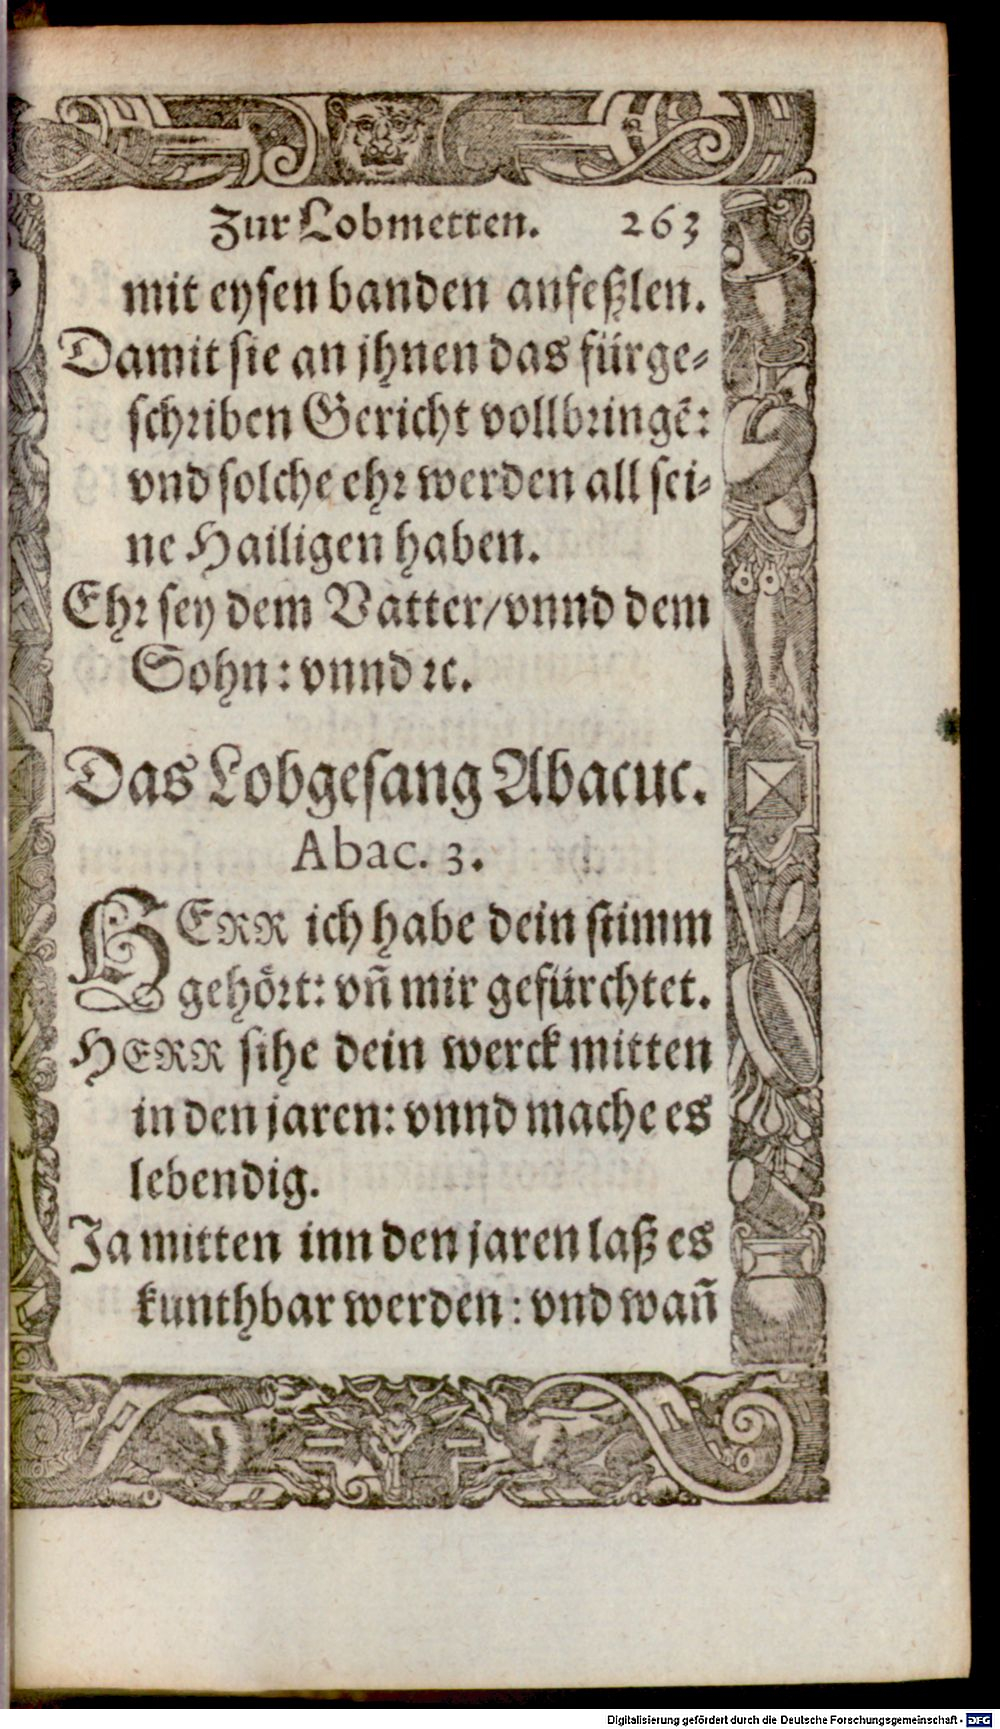 Zur Lobmetten. 263
mit eysen banden anfeßlen.
Damit sie an jhnen das fürge-
schriben Gericht vollbringẽ:
vnd solche ehr werden all sei-
ne Hailigen haben.
Ehr sey dem Vatter/vnnd dem
Sohn: vnnd ꝛc.
Das Lobgesang Abacuc.
Abac. 3.
HERR ich habe dein stimm
gehört: vñ mir gefürchtet.
HERR sihe dein werck mitten
in den jaren: vnnd mache es
lebendig.
Ja mitten inn den jaren laß es
kunthbar werden: vnd wañ
Digitalisierung gefördert durch die Deutsche Forschungsgemeinschaft - DFG